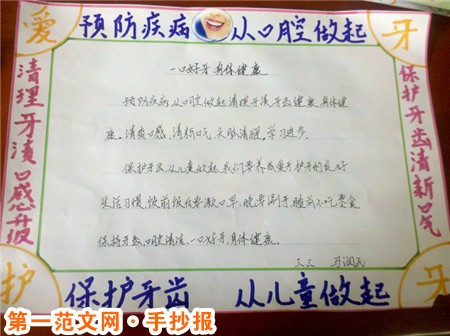 爱 预防疾病 从口腔做起 牙
清理牙渍口感升级
保护牙齿清新口气
一口好牙 身体健康
预防疾病,从口腔做起清理牙渍牙齿健康,身体健
康。清爽口感,清新口气,天天清理,学习进步。
保护牙齿,从儿童做起,我们要养成爱牙护牙的良好
生活习惯,饭前饭后要漱口,早晚要刷牙,睡前不吃零食
保持牙齿口腔清洁,一口好牙,身体健康。
三三
护 保护牙齿 从儿童做起 牙
第一范文网·手抄报